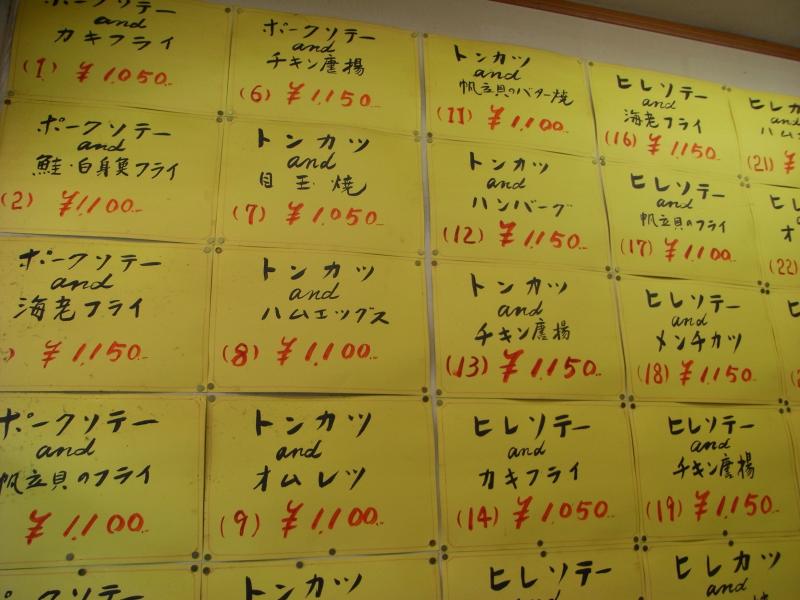 ポークソテー
and
カキフライ
(1) ¥1,050.-
ポークソテー
and
鮭・白身魚フライ
(2) ¥1,100.-
ポークソテー
and
海老フライ
) ¥1,150.-
ポークソテー
and
帆立貝のフライ
¥1,100.-
ポークソテー
and
チキン唐揚
(6) ¥1,150.-
トンカツ
and
目玉焼
(7) ¥1,050.-
トンカツ
and
ハムエッグス
(8) ¥1,100.-
トンカツ
and
オムレツ
(9) ¥1,100.-
トンカツ
トンカツ
and
帆立貝のバター焼
(11) ¥1,100.-
トンカツ
and
ハンバーグ
(12) ¥1,150.-
トンカツ
and
チキン唐揚
(13) ¥1,150.-
ヒレソテー
and
カキフライ
(14) ¥1,050.-
ヒレソテー
and
ヒレソテー
and
海老フライ
(16) ¥1,150.-
ヒレソテー
and
帆立貝のフライ
(17) ¥1,100.-
ヒレソテー
and
メンチカツ
(18) ¥1,150.-
ヒレソテー
and
チキン唐揚
(19) ¥1,150.-
ヒレカツ
and
ヒレカ
an
ハム
(21) ¥
ヒレ
オ
(22)